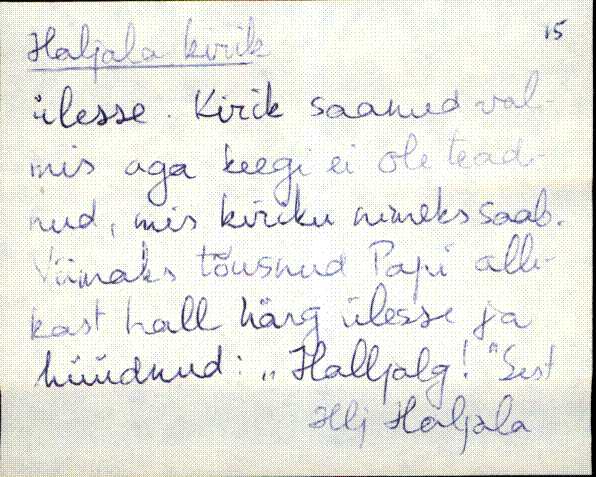 15
Haljala kirik
ülesse. Kirik saanud val-
mis aga keegi ei ole tead-
nud, mis kiriku nimeks saab.
Viimaks tõusnud Papi alli-
kast hall härg ülesse ja
hüüdnud: „Halljalg!" Sest
Hlj Haljala